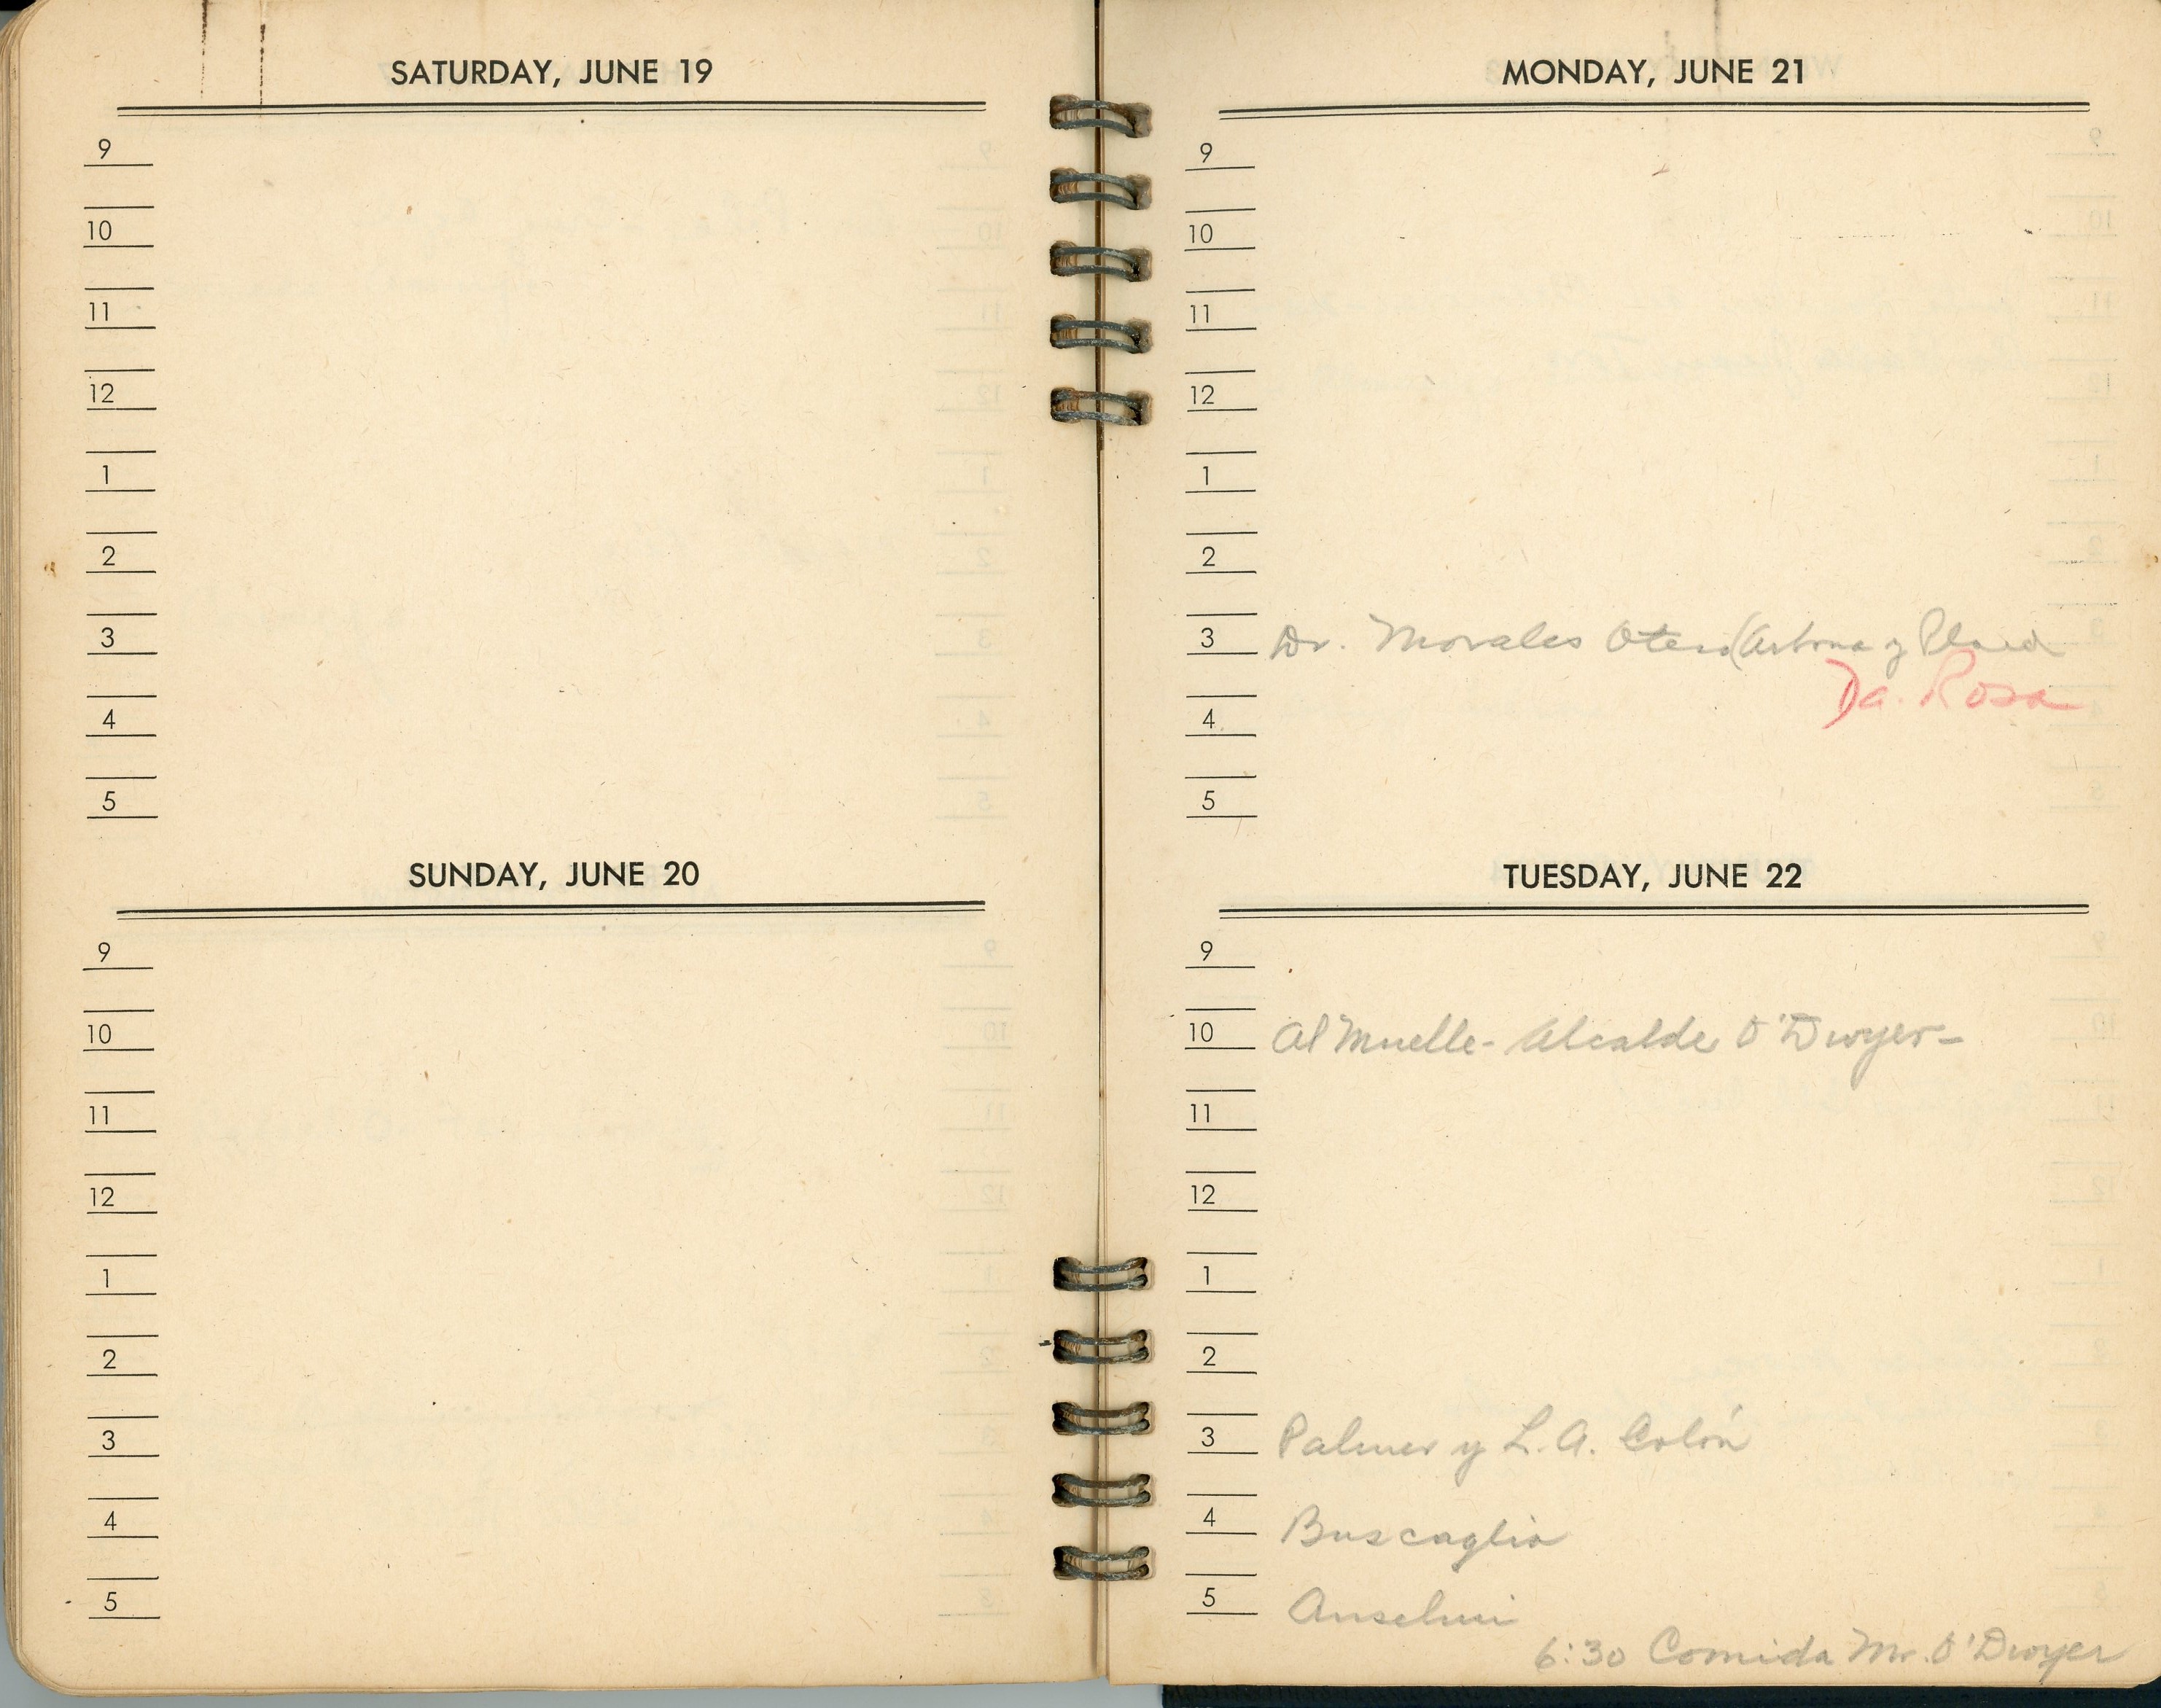 SATURDAY, JUNE 19
9
10
11
12
1
2
3
4
5
SUNDAY, JUNE 20
9
10
11
12
1
2
3
4
5
MONDAY, JUNE 21
9
10
11
12
1
2
3 Dr. Morales Otero (Arbona y
Da. Rosa
4
5
TUESDAY, JUNE 22
9
10 Al Muelle - Alcalde O'Dwyer -
11
12
1
2
3 Palmer y L. A. Colón
4 Buscaglia
5 Anselmi
6:30 Comida Mr. O'Dwyer